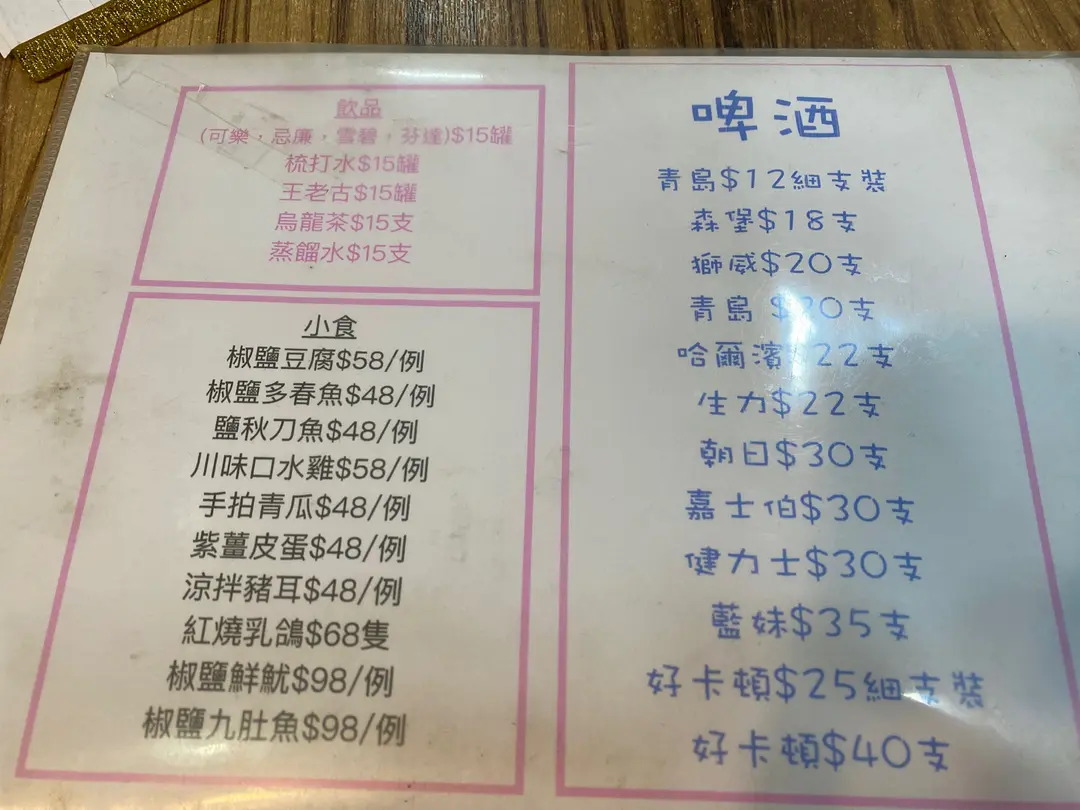 飲品
(可樂，忌廉，雪碧，芬達)$15罐
梳打水$15罐
王老古$15罐
烏龍茶$15支
蒸餾水$15支
小食
椒鹽豆腐$58/例
椒鹽多春魚$48/例
鹽秋刀魚$48/例
川味口水雞$58/例
手拍青瓜$48/例
紫薑皮蛋$48/例
涼拌豬耳$48/例
紅燒乳鴿$68隻
椒鹽鮮魷$98/例
椒鹽九肚魚$98/例
啤酒
青島$12細支裝
森堡$18支
獅威$20支
青島 $20支
哈爾濱$22支
生力$22支
朝日$30支
嘉士伯$30支
健力士$30支
藍妹$35支
好卡頓$25細支裝
好卡頓$40支